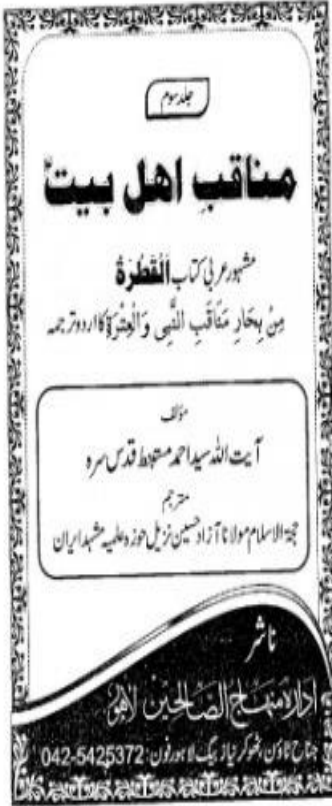 جلد سوم
مناقبِ اھل بیتؑ
مشہور عربی کتاب اَلْقَطْرَةُ
مِنْ بِحَارِ مَنَاقِبِ النَّبِیِّ وَالْعِتْرَةِ کا اردو ترجمہ
مؤلف
آیت اللہ سید احمد مستنبط قدس سرہ
مترجم
حجۃ الاسلام مولانا آزاد حسین نزیل حوزہ علمیہ مشہد ایران
ناشر
ادارہ منہاج الصالحین لاہور
جناح ٹاؤن، ٹھوکر نیاز بیگ لاہور فون: 5425372-042